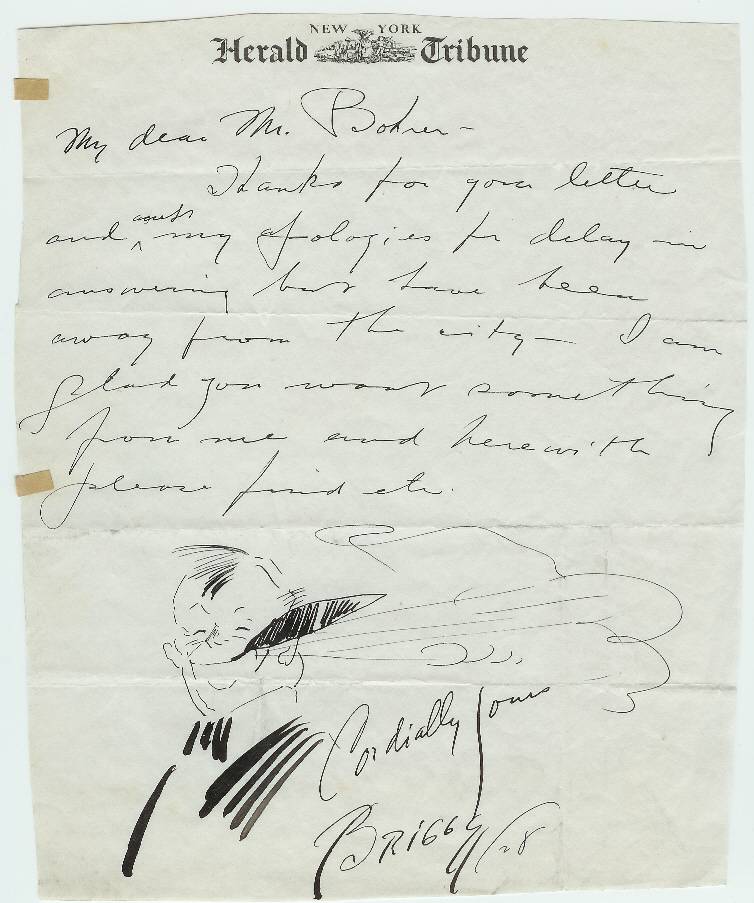 NEW YORK
Herald Tribune
My dear Mr. Bohrer —
Thanks for your letter
and my apologies for delay in
answering but have been
away from the city — I am
glad you want something
from me and herewith
please find etc.
Cordially Yours
BRIGGS /28